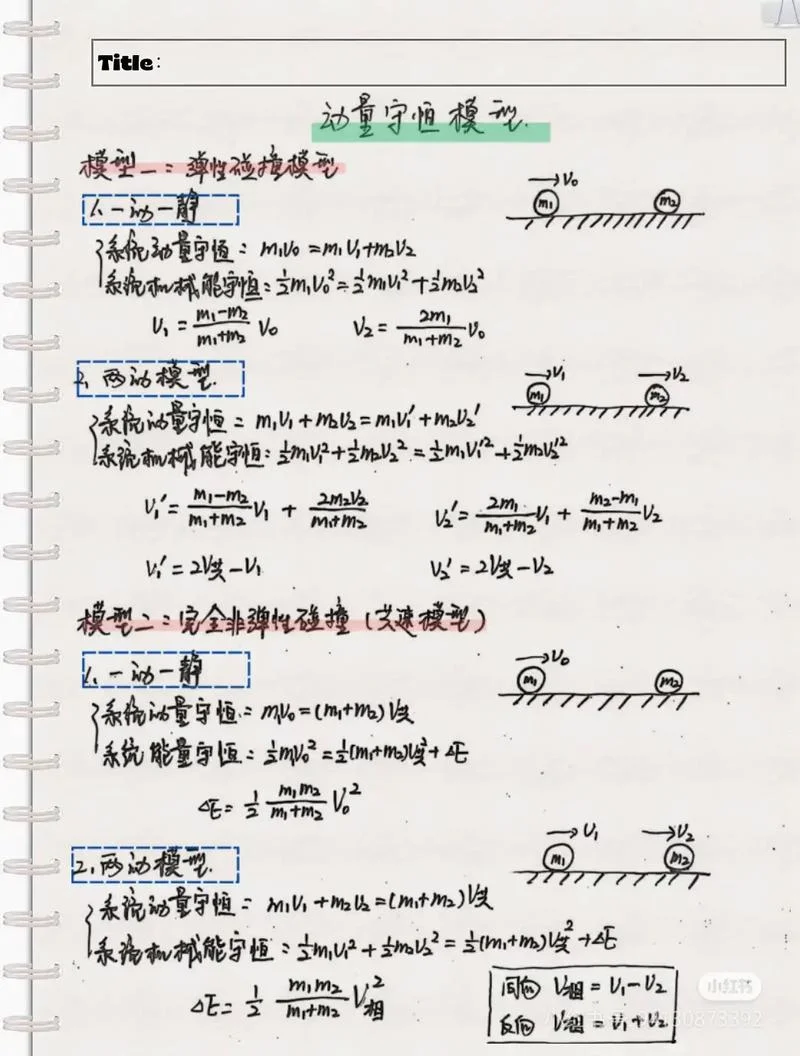 Title:
动量守恒模型.
模型一:弹性碰撞模型
1.一动一静
→V₀
m₁ m₂
系统动量守恒: m₁V₀=m₁V₁+m₂V₂
系统机械能守恒:½m₁V₀²=½m₁V₁²+½m₂V₂²
V₁=(m₁-m₂)/(m₁+m₂) V₀ V₂=2m₁/(m₁+m₂) V₀
2.两动模型.
→V₁ →V₂
m₁ m₂
系统动量守恒: m₁V₁+m₂V₂=m₁V₁'+m₂V₂'
系统机械能守恒:½m₁V₁²+½m₂V₂²=½m₁V₁'²+½m₂V₂'²
V₁'=(m₁-m₂)/(m₁+m₂) V₁ + 2m₂V₂/(m₁+m₂) V₂'=2m₁/(m₁+m₂) V₁ + (m₂-m₁)/(m₁+m₂) V₂
V₁'=2V共-V₁ V₂'=2V共-V₂
模型二:完全非弹性碰撞(共速模型)
1.一动一静
→V₀
m₁ m₂
系统动量守恒: m₁V₀=(m₁+m₂)V共
系统能量守恒: ½m₁V₀²=½(m₁+m₂)V共²+ΔE
ΔE=½ m₁m₂/(m₁+m₂) V₀²
2.两动模型.
→V₁ →V₂
m₁ m₂
系统动量守恒: m₁V₁+m₂V₂=(m₁+m₂)V共
系统机械能守恒:½m₁V₁²+½m₂V₂²=½(m₁+m₂)V共²+ΔE
ΔE=½ m₁m₂/(m₁+m₂) V相²
同向 V相=V₁-V₂
反向 V相=V₁+V₂
小红书